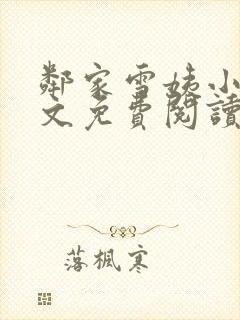 鄰家雪姨小
文免費閱讀
落楓寒